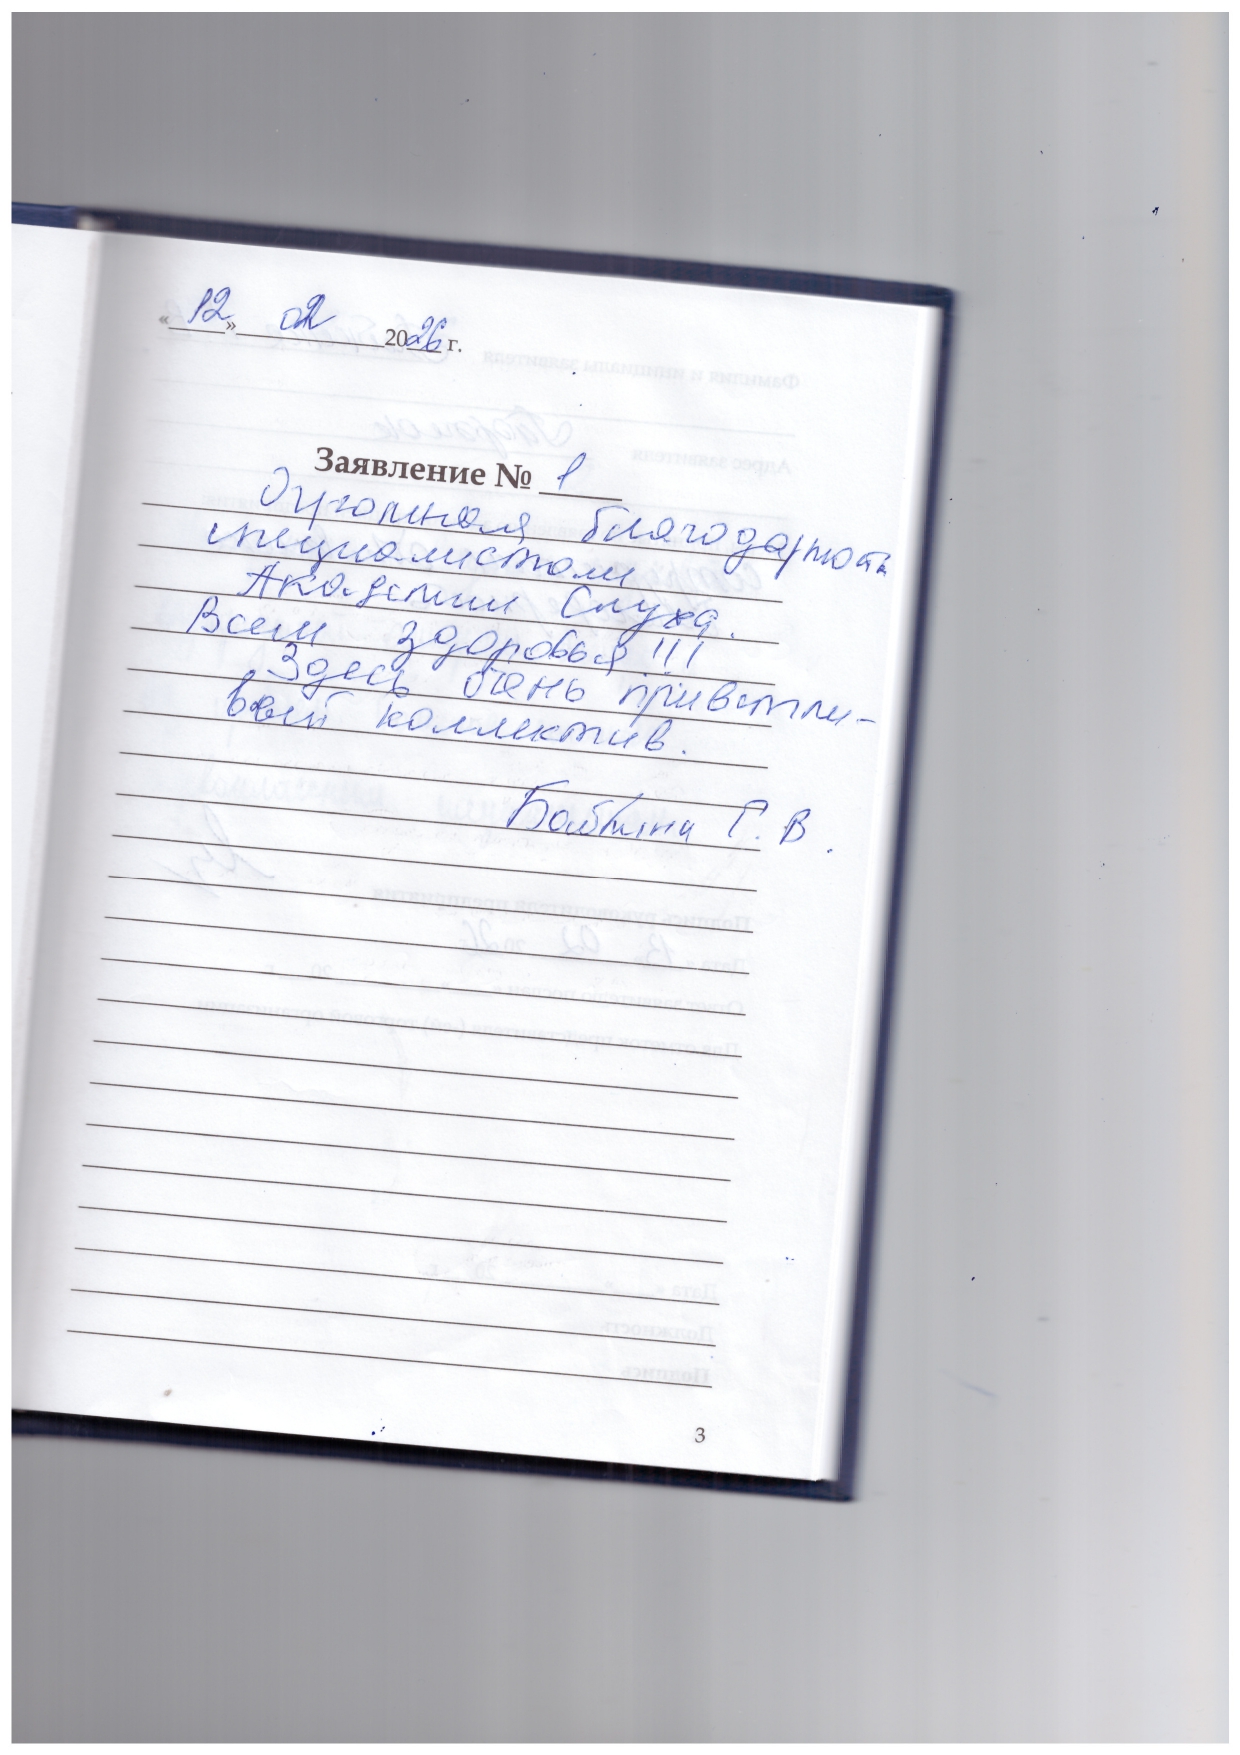 «12» 02 2026 г.
Заявление № 1
Огромная благодарность
специалистам
Академии Слуха.
Всем здоровья!!!
Здесь очень приветли-
вый коллектив.
Г. В.
3